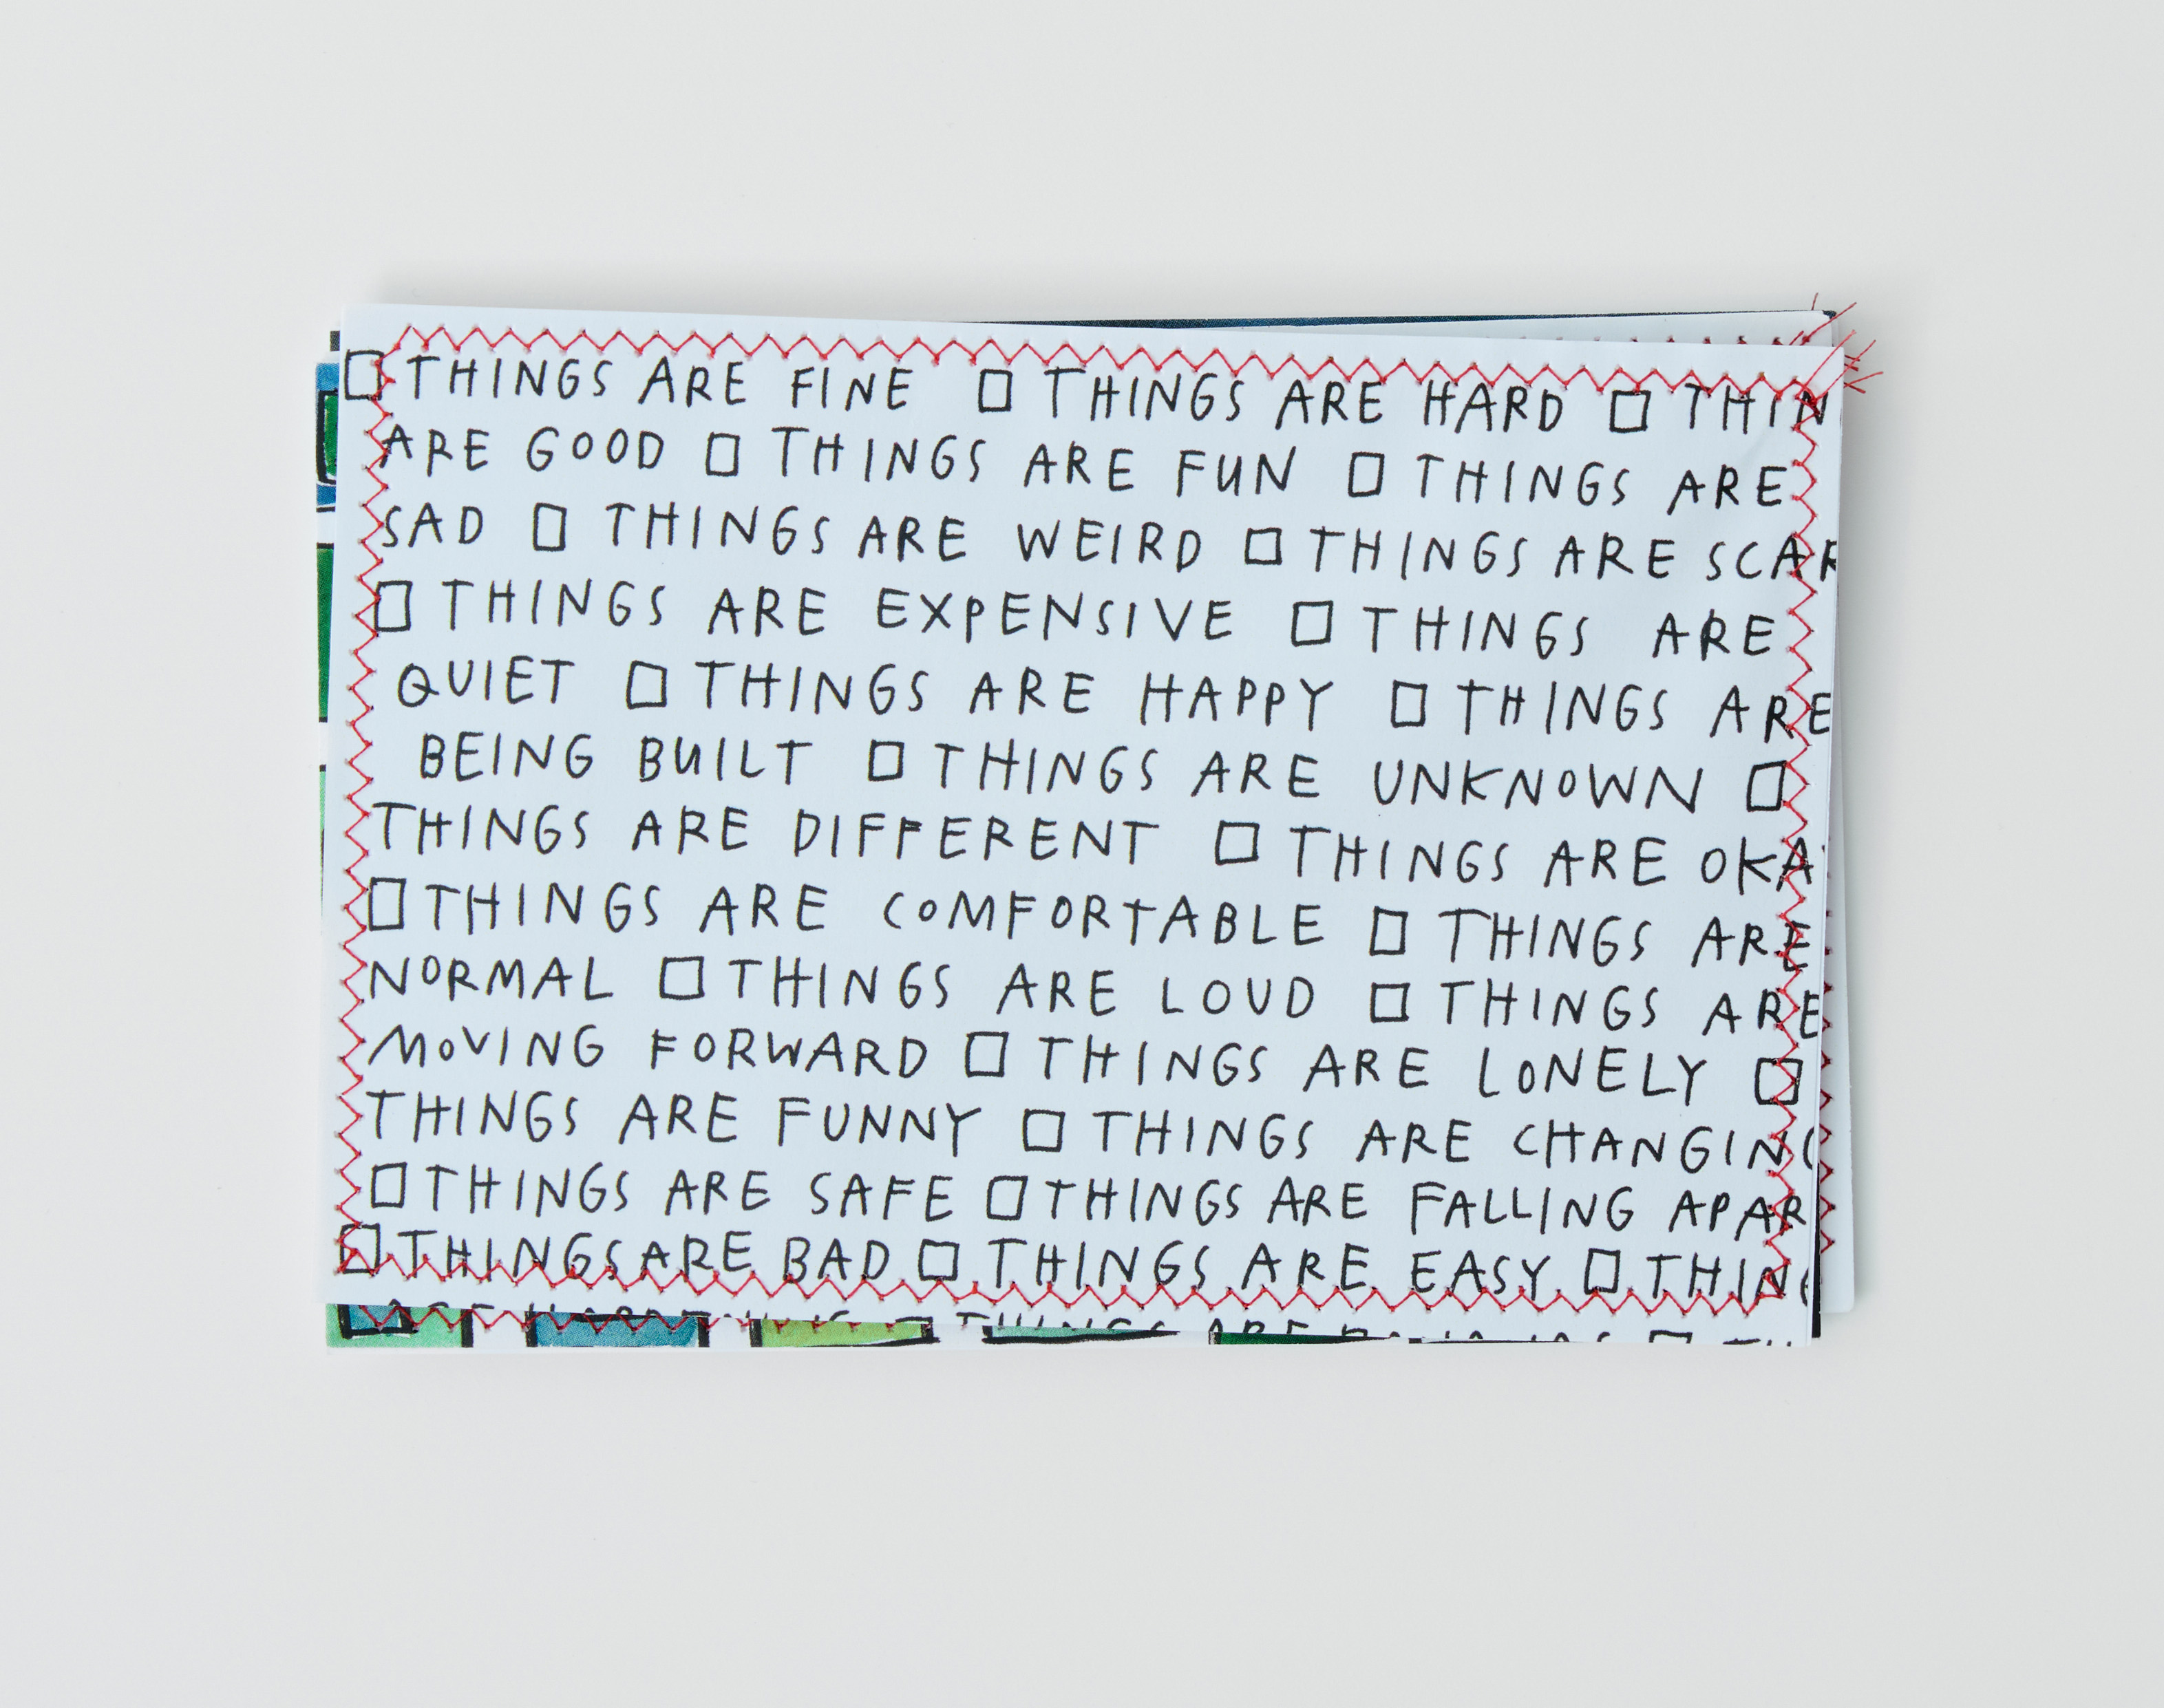 ☐ THINGS ARE FINE ☐ THINGS ARE HARD ☐ THIN
ARE GOOD ☐ THINGS ARE FUN ☐ THINGS ARE
SAD ☐ THINGS ARE WEIRD ☐ THINGS ARE SCAR
☐ THINGS ARE EXPENSIVE ☐ THINGS ARE
QUIET ☐ THINGS ARE HAPPY ☐ THINGS ARE
BEING BUILT ☐ THINGS ARE UNKNOWN ☐
THINGS ARE DIFFERENT ☐ THINGS ARE OKA
☐ THINGS ARE COMFORTABLE ☐ THINGS ARE
NORMAL ☐ THINGS ARE LOUD ☐ THINGS ARE
MOVING FORWARD ☐ THINGS ARE LONELY ☐
THINGS ARE FUNNY ☐ THINGS ARE CHANGING
☐ THINGS ARE SAFE ☐ THINGS ARE FALLING APAR
☐ THINGS ARE BAD ☐ THINGS ARE EASY ☐ THING
☐ THINGS ARE